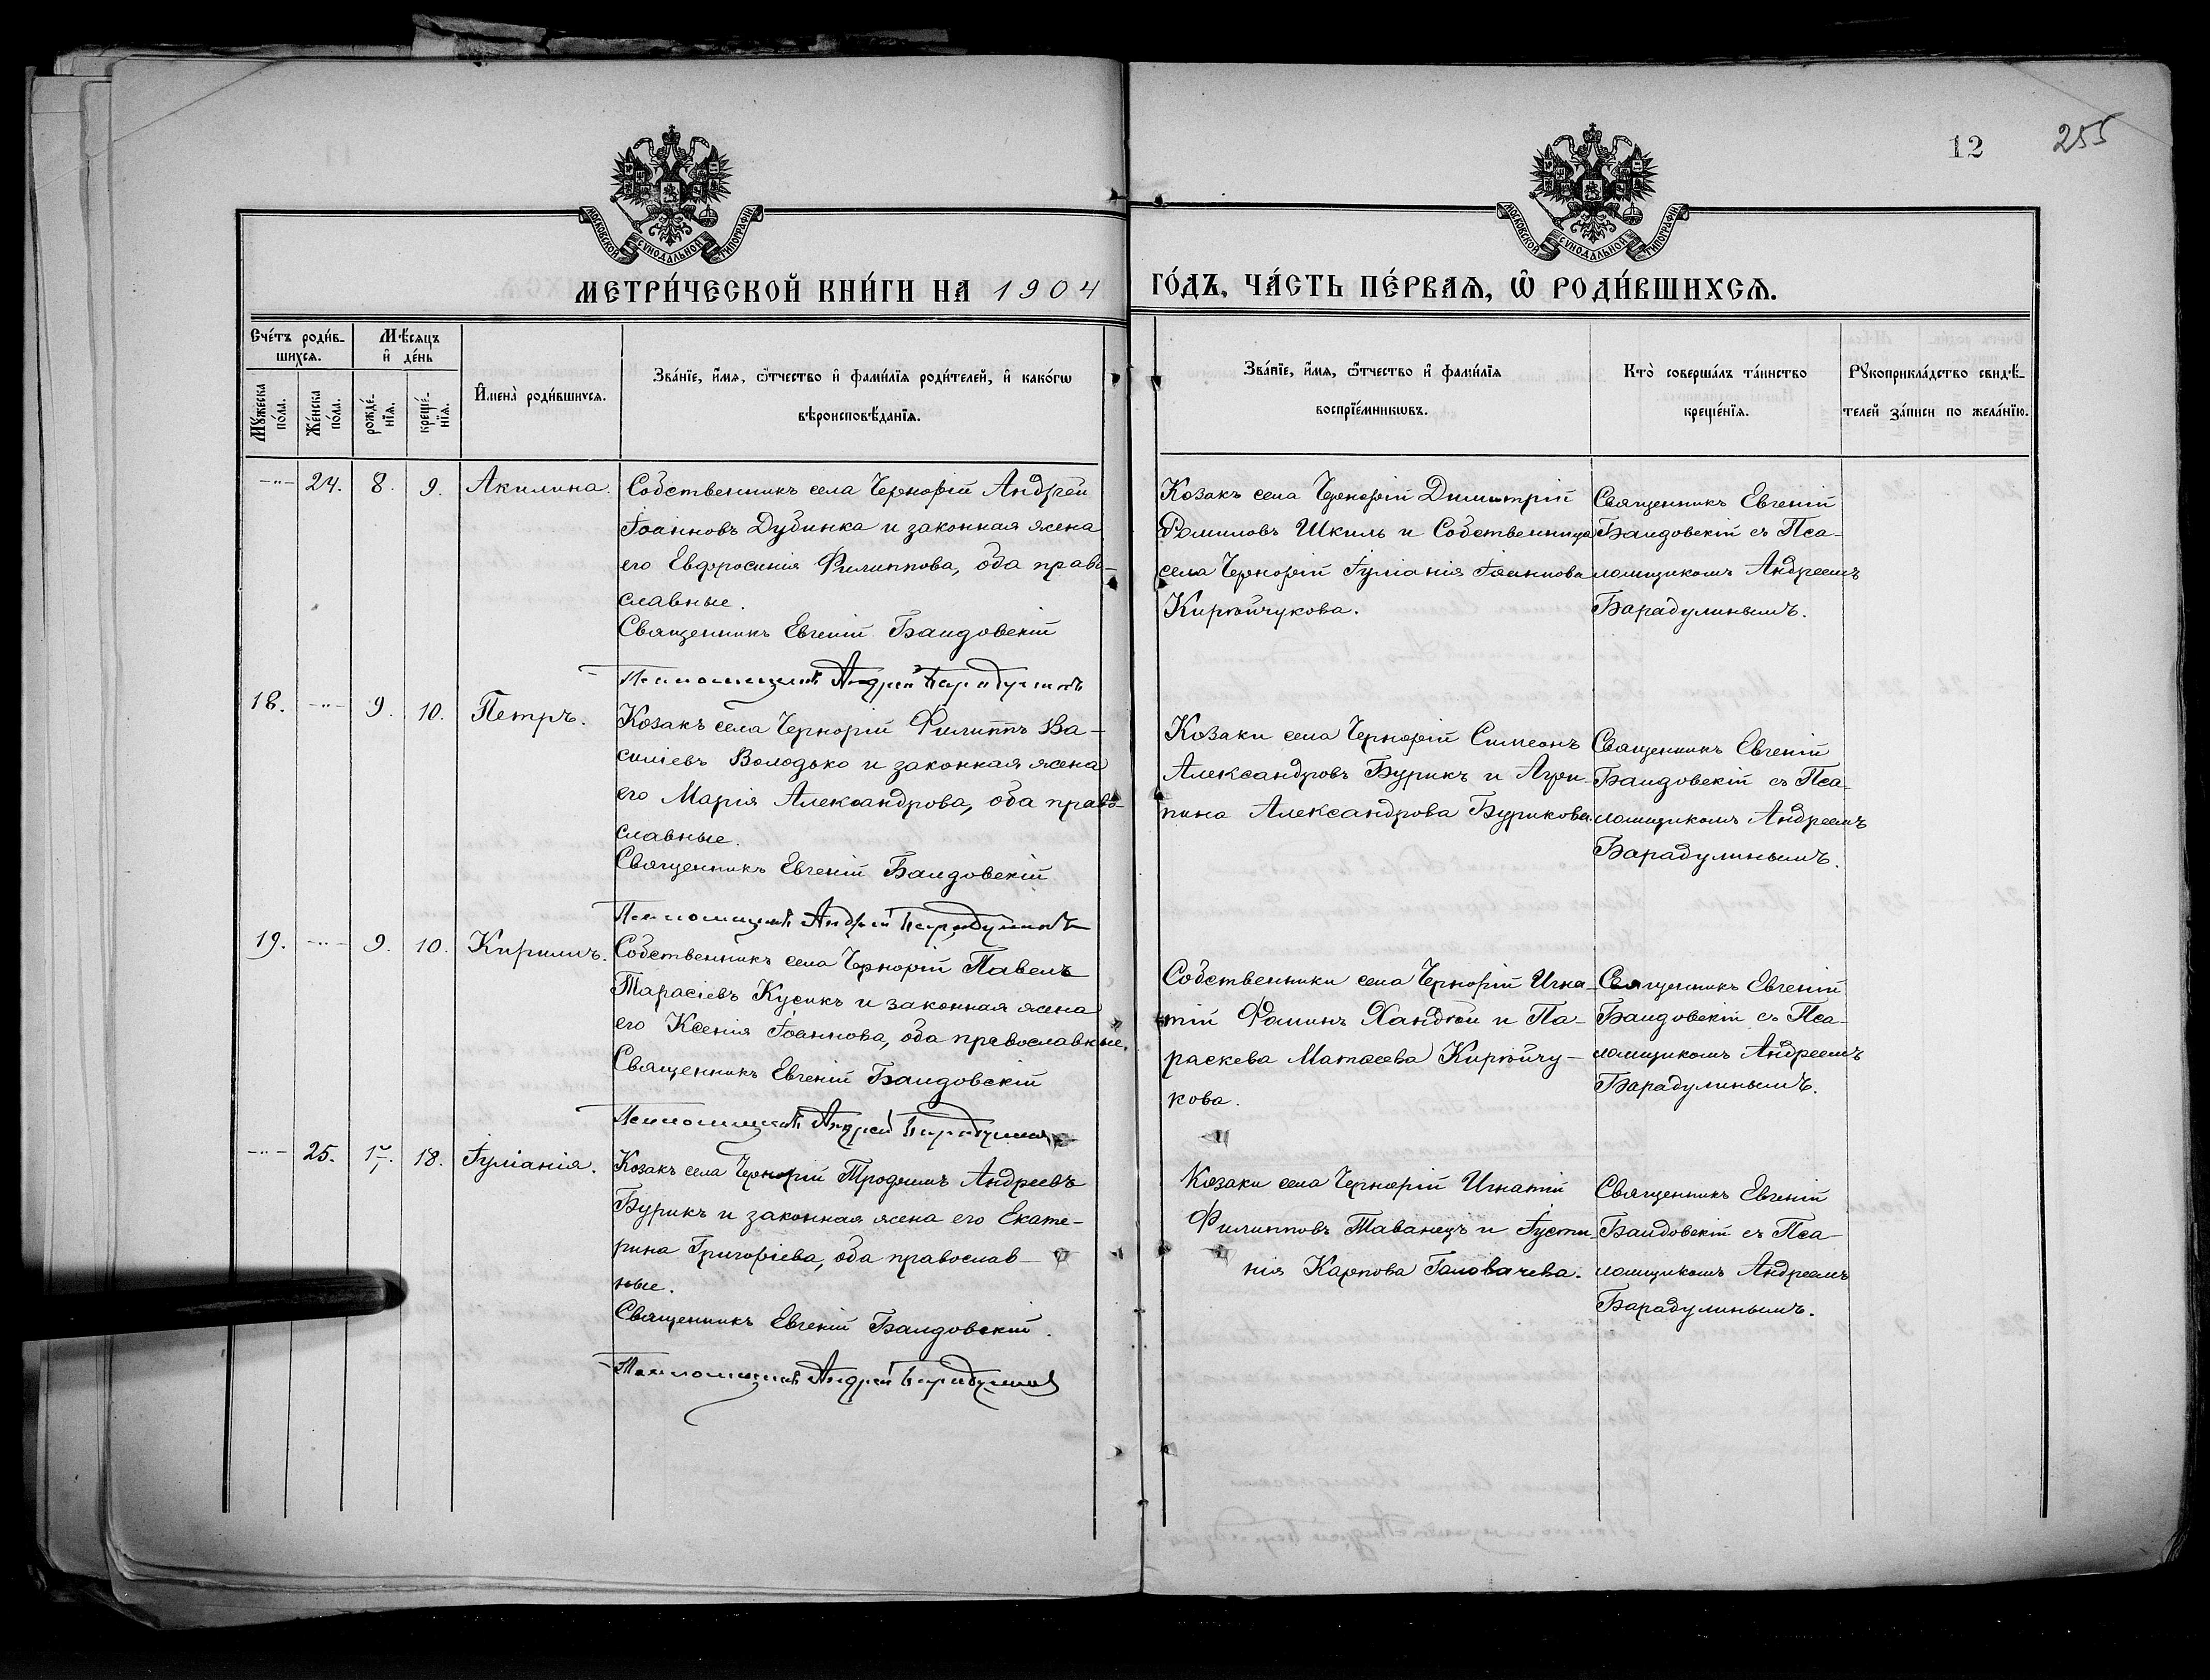 12
255
МОСКОВСКОЙ СѴНОДАЛЬНОЙ ТИПОГРАФІИ
МОСКОВСКОЙ СѴНОДАЛЬНОЙ ТИПОГРАФІИ
МЕТРИ́ЧЕСКОЙ КНИ́ГИ НА 1904
ГО́ДЪ, ЧА́СТЬ ПЕ́РВАѦ, Ѽ РОДИ́ВШИХСѦ.
Сче́тъ роди́в-
шихсѧ.
Мꙋ́жеска
по́ла.
Же́нска
по́ла.
Мѣ́сѧцъ
и҆ де́нь
рожде́-
нїѧ.
креще́-
нїѧ.
И҆мена̀ роди́вшихсѧ.
Зва́нїе, и҆́мѧ, ѻ҆́тчество и҆ фами́лїѧ роди́телей, и҆ како́гѡ
вѣроисповѣ́данїѧ.
Зва́нїе, и҆́мѧ, ѻ҆́тчество и҆ фами́лїѧ
воспрїе́мникѡвъ.
Кто̀ соверша́лъ та́инство
креще́нїѧ.
Рꙋкоприкла́дство свидѣ́-
телей за́писи по жела́нїю.
-"- 24. 8. 9. Акилина.
Собственникъ села Черногрій Андрей
Іоанновъ Дубинка и законная жена
его Евфросинія Филиппова, оба право-
славные.
Священникъ Евгеній
Псаломщикъ Андрей Барадулинъ
Козакъ села Черногрій Димитрій
Шкиль и Собственница
села Черногрій Іуліанія Іоаннова
Кирійчукова.
Священникъ Евгеній
съ Пса-
ломщикомъ Андреемъ
Барадулинымъ.
18. -"- 9. 10. Петръ.
Козакъ села Черногрій Филиппъ Ва-
силіевъ Володько и законная жена
его Марія Александрова, оба право-
славные.
Священникъ Евгеній
Псаломщикъ Андрей Барадулинъ
Козаки села Черногрій Симеонъ
Александровъ Бурикъ и Агри-
пина Александрова Бурикова.
Священникъ Евгеній
съ Пса-
ломщикомъ Андреемъ
Барадулинымъ.
19. -"- 9. 10. Кириллъ.
Собственникъ села Черногрій Павелъ
Тарасіевъ Кусикъ и законная жена
его Ксенія Іоаннова, оба православные.
Священникъ Евгеній
Псаломщикъ Андрей Барадулинъ
Собственники села Черногрій Игна-
тій Фоминъ и Па-
раскева Матѳеева Кирійчу-
кова.
Священникъ Евгеній
съ Пса-
ломщикомъ Андреемъ
Барадулинымъ.
-"- 25. 18. Іуліанія.
Козакъ села Черногрій Трофимъ Андреевъ
Бурикъ и законная жена его Екате-
рина Григоріева, оба православ-
ные.
Священникъ Евгеній
Псаломщикъ Андрей Барадулинъ
Козаки села Черногрій Игнатій
Филипповъ Таванецъ и Іусти-
нія Карпова Головачева.
Священникъ Евгеній
съ Пса-
ломщикомъ Андреемъ
Барадулинымъ.